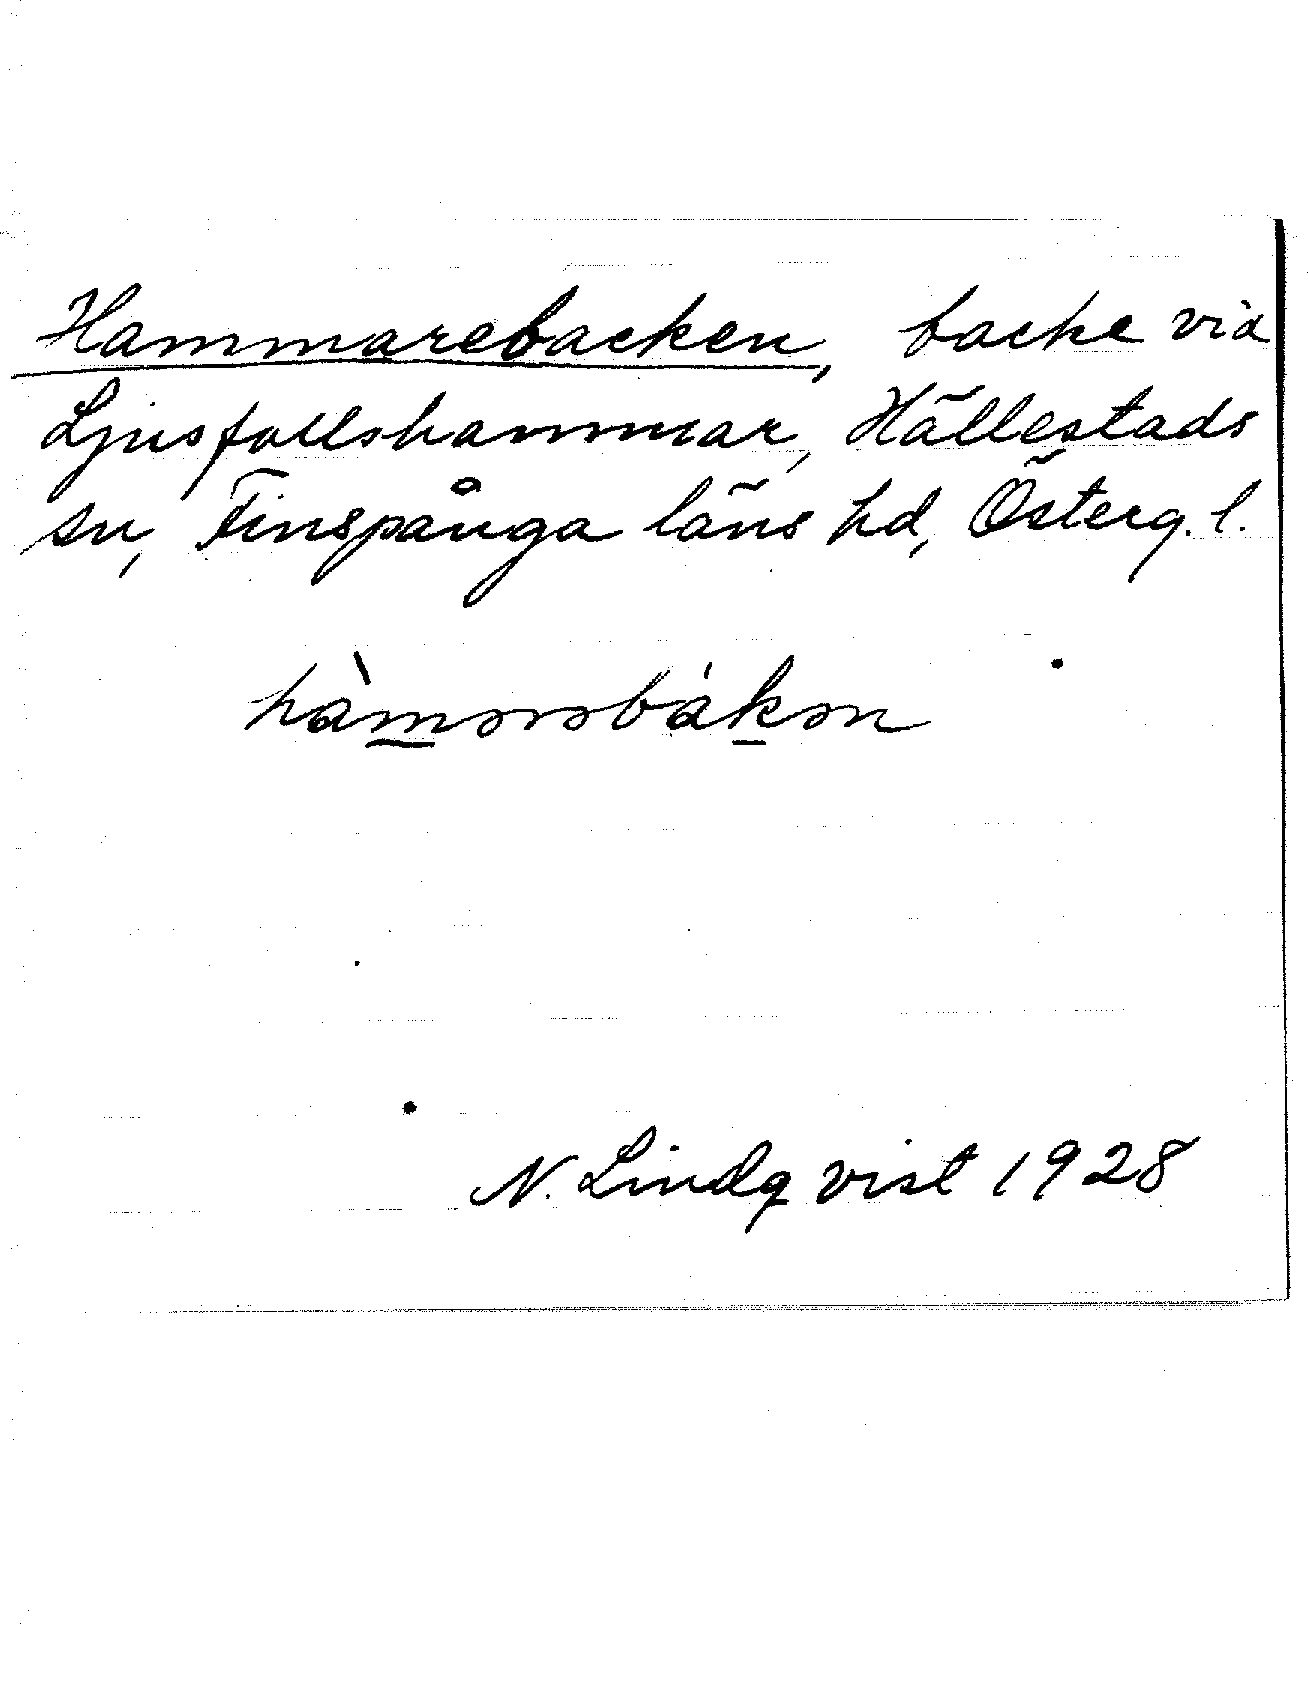 Hammarebacken, backe vid
Ljusfallshammar, Hällestads
sn, Finspånga läns hd, Österg. l.
hàmərəbákən
N. Lindqvist 1928